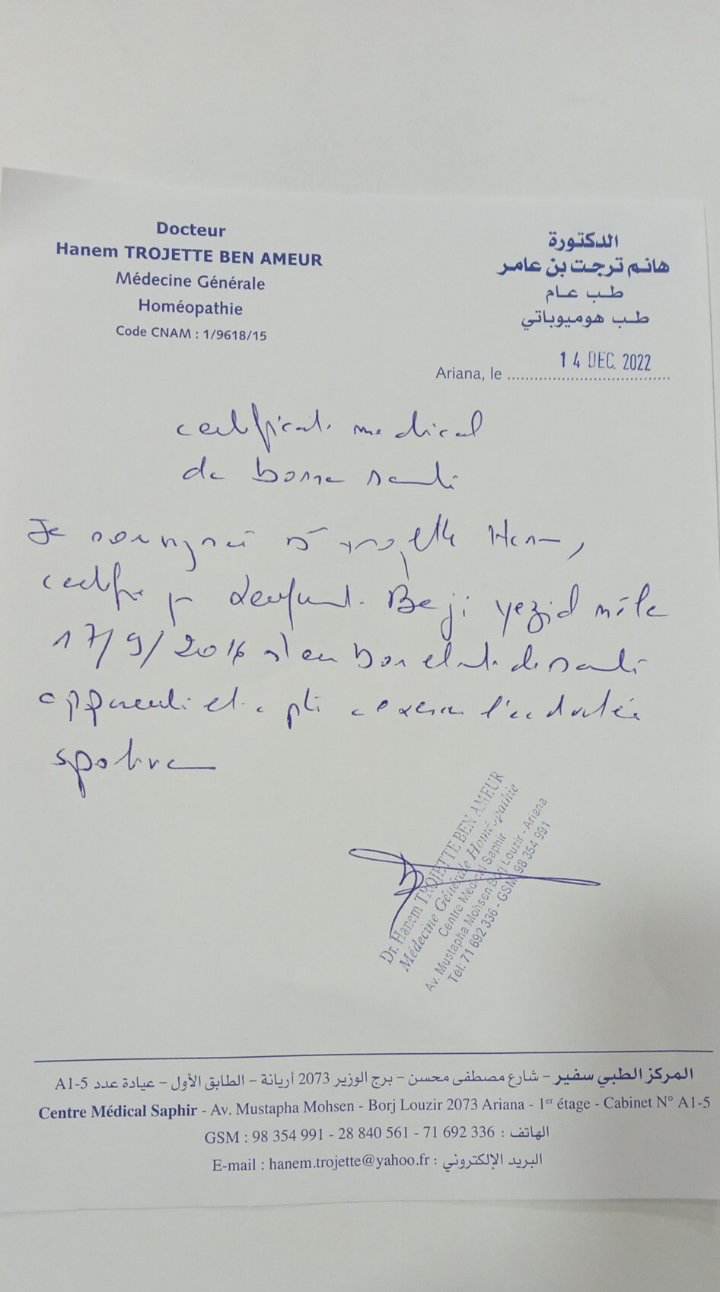 Docteur
Hanem TROJETTE BEN AMEUR
Médecine Générale
Homéopathie
Code CNAM : 1/9618/15
الدكتورة
هانم ترجت بن عامر
طب عام
طب هوميوباتي
Ariana, le 14 DEC. 2022
certificat medical
de bonne santé
Je soussigné Dr Trojette Hanem,
certifie que l'enfant Beji Yezid né le
17/9/2016 est en bon état de santé
apparent et apte a exercer l'activitée
sportive
Dr. Hanem TROJETTE BEN AMEUR
Médecine Générale Homéopathie
Centre Médical Saphir
Av. Mustapha Mohsen Borj Louzir - Ariana
Tél: 71 692 336 - GSM: 98 354 991
المركز الطبي سفير – شارع مصطفى محسن – برج الوزير 2073 أريانة – الطابق الأول – عيادة عدد A1-5
Centre Médical Saphir - Av. Mustapha Mohsen - Borj Louzir 2073 Ariana - 1er étage - Cabinet N° A1-5
GSM : 98 354 991 - 28 840 561 - 71 692 336 : الهاتف
E-mail : hanem.trojette@yahoo.fr : البريد الإلكتروني